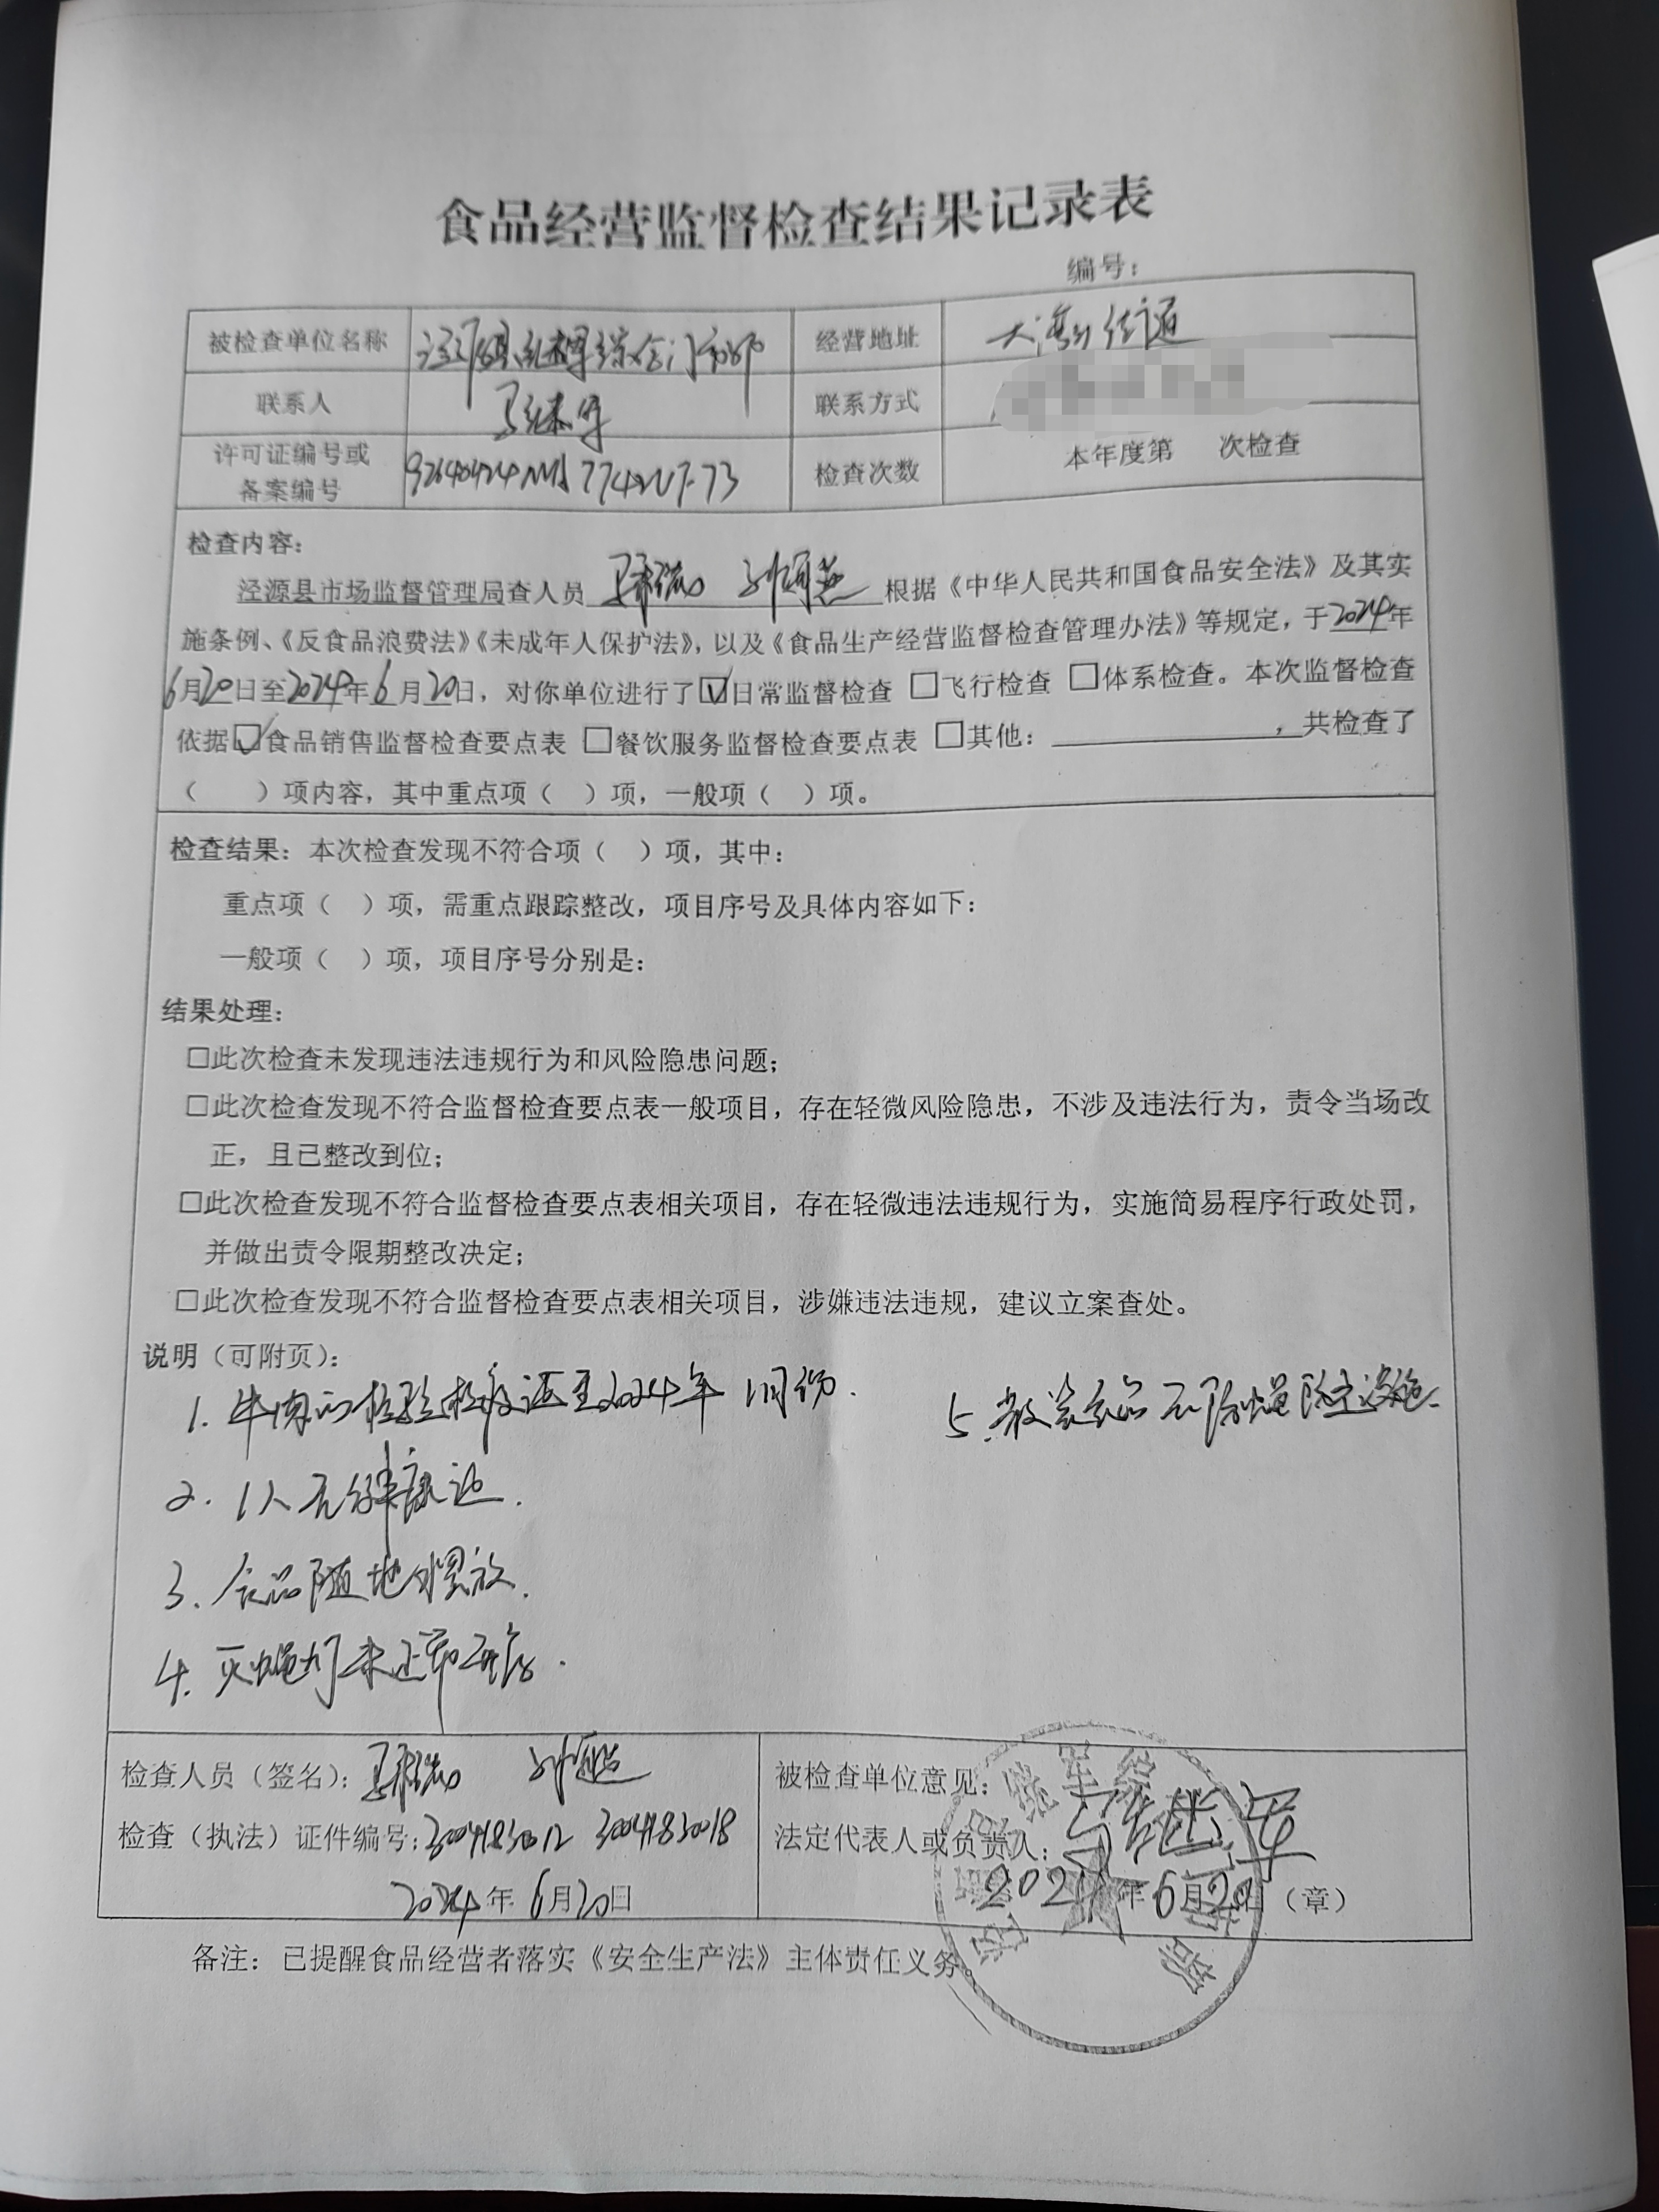 食品经营监督检查结果记录表
编号：
被检查单位名称 泾源县 综合门市部 经营地址 大湾街道
联系人 联系方式
许可证编号或
备案编号
检查次数 本年度第 次检查
检查内容：
泾源县市场监督管理局查人员 根据《中华人民共和国食品安全法》及其实
施条例、《反食品浪费法》《未成年人保护法》，以及《食品生产经营监督检查管理办法》等规定，于2024年
6月20日至2024年6月20日，对你单位进行了☑日常监督检查 □飞行检查 □体系检查。本次监督检查
依据☑食品销售监督检查要点表 □餐饮服务监督检查要点表 □其他： ，共检查了
（ ）项内容，其中重点项（ ）项，一般项（ ）项。
检查结果：本次检查发现不符合项（ ）项，其中：
重点项（ ）项，需重点跟踪整改，项目序号及具体内容如下：
一般项（ ）项，项目序号分别是：
结果处理：
□此次检查未发现违法违规行为和风险隐患问题；
□此次检查发现不符合监督检查要点表一般项目，存在轻微风险隐患，不涉及违法行为，责令当场改
正，且已整改到位；
□此次检查发现不符合监督检查要点表相关项目，存在轻微违法违规行为，实施简易程序行政处罚，
并做出责令限期整改决定；
□此次检查发现不符合监督检查要点表相关项目，涉嫌违法违规，建议立案查处。
说明（可附页）：
1. 牛肉的检验检疫证至2024年1月份.
2. 1人无健康证.
3. 食品随地摆放.
4. 灭蝇灯未正常 .
5. 散装食品无防蝇防尘设施.
检查人员（签名）：
检查（执法）证件编号：30041830012 30041830018
2024年6月20日
被检查单位意见：
法定代表人或负责人：
2024年6月20日（章）
备注：已提醒食品经营者落实《安全生产法》主体责任义务。